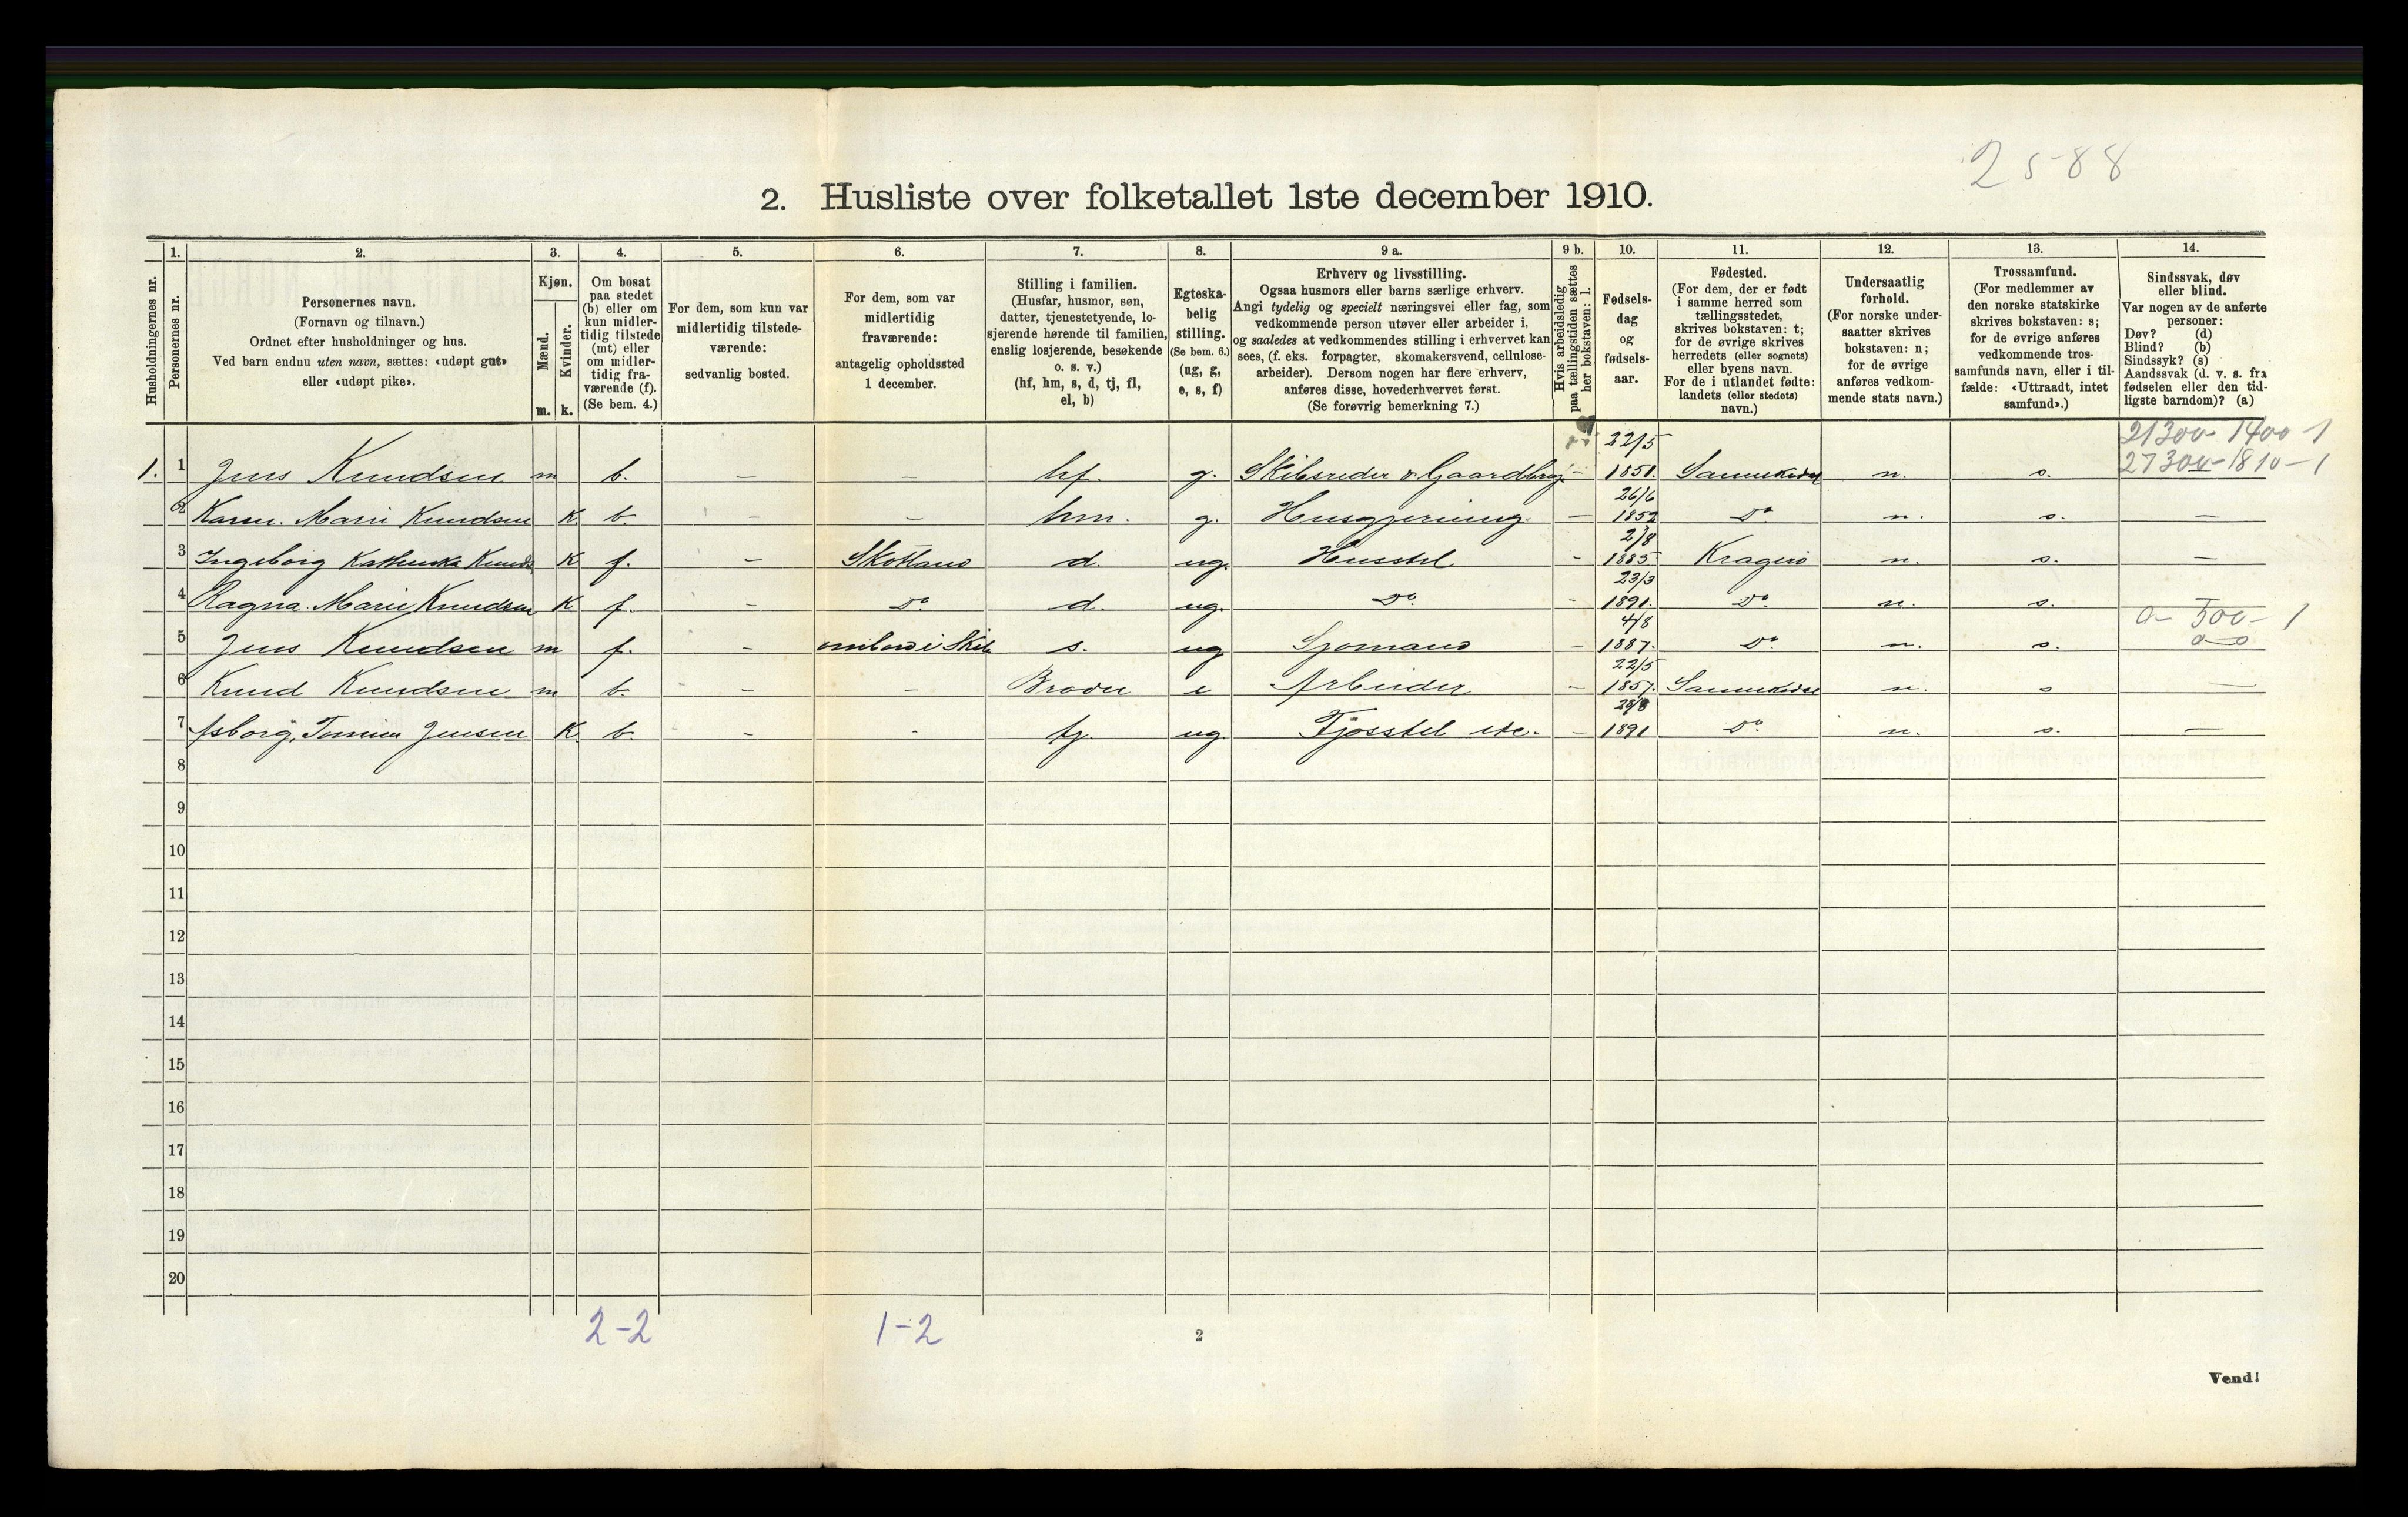 2 5-88
2. Husliste over folketallet 1ste december 1910.
1. 2. 3. 4. 5. 6. 7. 8. 9 a. 9 b. 10. 11. 12. 13. 14.
Husholdningernes nr.
Personernes nr.
Personernes navn.
(Fornavn og tilnavn.)
Ordnet efter husholdninger og hus.
Ved barn endnu uten navn, sættes: «udøpt gut»
eller «udøpt pike».
Kjøn.
Mænd.
Kvinder.
m. k.
Om bosat
paa stedet
(b) eller om
kun midler-
tidig tilstede
(mt) eller
om midler-
tidig fra-
værende (f).
(Se bem. 4.)
For dem, som kun var
midlertidig tilstede-
værende:
sedvanlig bosted.
For dem, som var
midlertidig
fraværende:
antagelig opholdssted
1 december.
Stilling i familien.
(Husfar, husmor, søn,
datter, tjenestetyende, lo-
sjerende hørende til familien,
enslig losjerende, besøkende
o. s. v.)
(hf, hm, s, d, tj, fl,
el, b)
Egteska-
belig
stilling.
(Se bem. 6.)
(ug, g,
e, s, f)
Erhverv og livsstilling.
Ogsaa husmors eller barns særlige erhverv.
Angi tydelig og specielt næringsvei eller fag, som
vedkommende person utøver eller arbeider i,
og saaledes at vedkommendes stilling i erhvervet kan
sees, (f. eks. forpagter, skomakersvend, cellulose-
arbeider). Dersom nogen har flere erhverv,
anføres disse, hovederhvervet først.
(Se forøvrig bemerkning 7.)
Hvis arbeidsledig
paa tællingstiden sættes
her bokstaven: l.
Fødsels-
dag
og
fødsels-
aar.
Fødested.
(For dem, der er født
i samme herred som
tællingsstedet,
skrives bokstaven: t;
for de øvrige skrives
herredets (eller sognets)
eller byens navn.
For de i utlandet fødte:
landets (eller stedets)
navn.)
Undersaatlig
forhold.
(For norske under-
saatter skrives
bokstaven: n;
for de øvrige
anføres vedkom-
mende stats navn.)
Trossamfund.
(For medlemmer av
den norske statskirke
skrives bokstaven: s;
for de øvrige anføres
vedkommende tros-
samfunds navn, eller i til-
fælde: «Uttraadt, intet
samfund».)
Sindssvak, døv
eller blind.
Var nogen av de anførte
personer:
Døv? (d)
Blind? (b)
Sindssyk? (s)
Aandssvak (d. v. s. fra
fødselen eller den tid-
ligste barndom)? (a)
22/5 21300-1400-1
1. 1 Jens Knudsen m b. - - hf. g. Skibsreder & Gaardbrug. - 1851. Sannikedal n. s. 27300-1810-1
26/6
2 Karen. Marie Knudsen K b. - - hm. g. Husgjerning - 1852 Do n. s. -
2/8
3 Ingeborg Kathinka Knuds K f. - Skotland d. ug. Husstel - 1885 Kragerø n. s. -
23/3
4 Ragna. Marie Knudsen K f. - Do d. ug. Do. - 1891. Do. n. s.
4/8 0-500-1
5 Jens Knudsen m f. - ombord i Skib s. ug Sjømand - 1887. Do n. s. 0-0
22/5
6 Knud Knudsen m b. - - Broder e Arbeider - 1857. Sannikedal n. s -
28/8
7 Jensen K b. - - tj. ug. Fjøsstel etc. - 1891 Do. n. s. -
8
9
10
11
12
13
14
15
16
17
18
19
20
2-2 1-2
2
Vend!